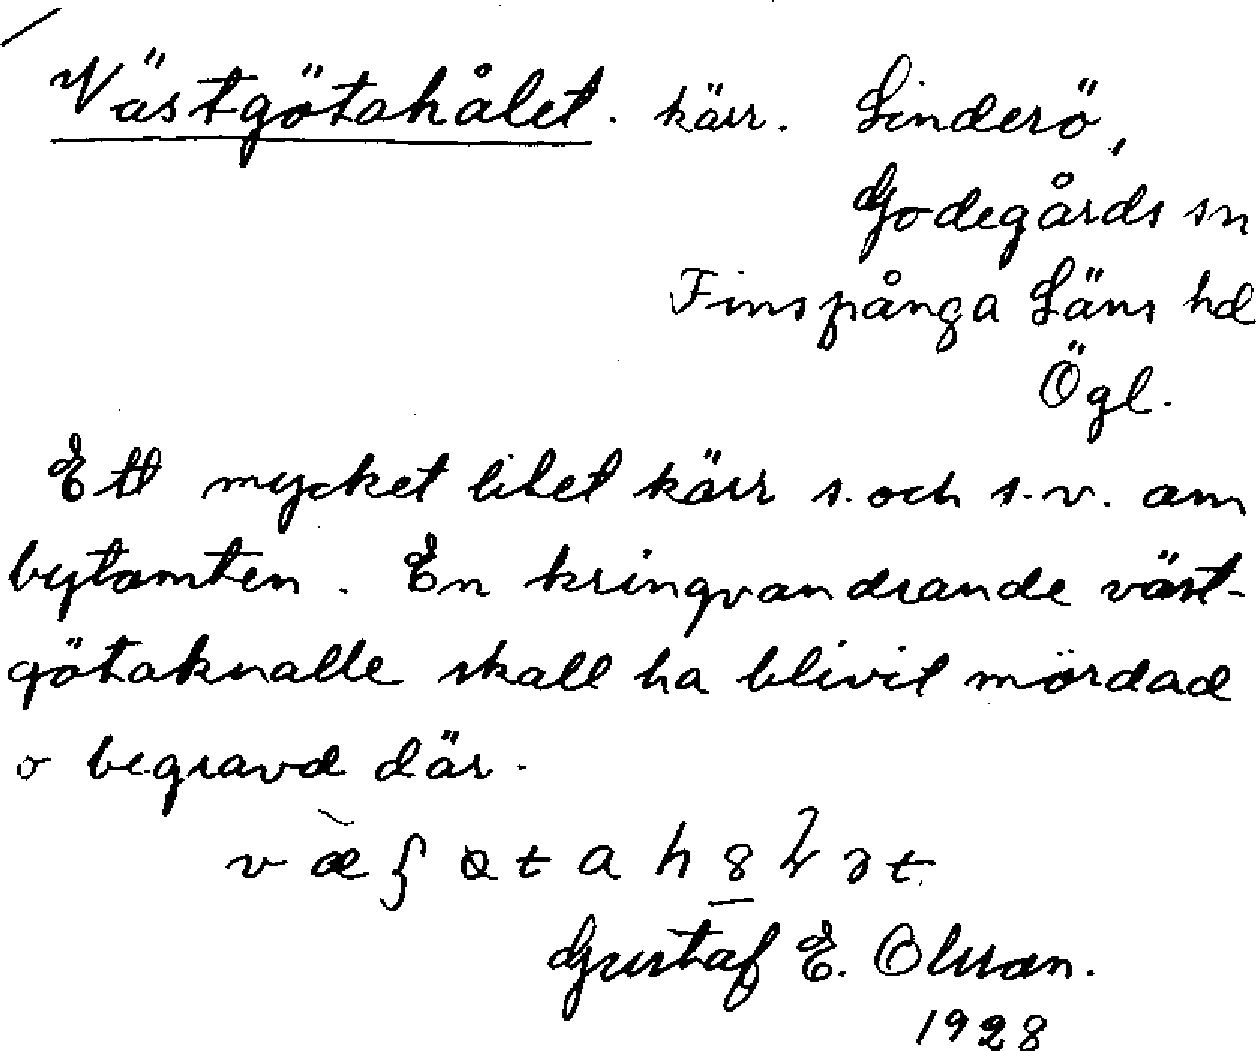 Västgötahålet. kärr. Linderö,
Godegårds sn
Finspånga Läns hd
Ögl.
Ett mycket litet kärr s. och s.v. om
bytomten. En kringvandrande väst-
götaknalle skall ha blivit mördad
o begravd där.
Gustaf E. Olsson.
1928